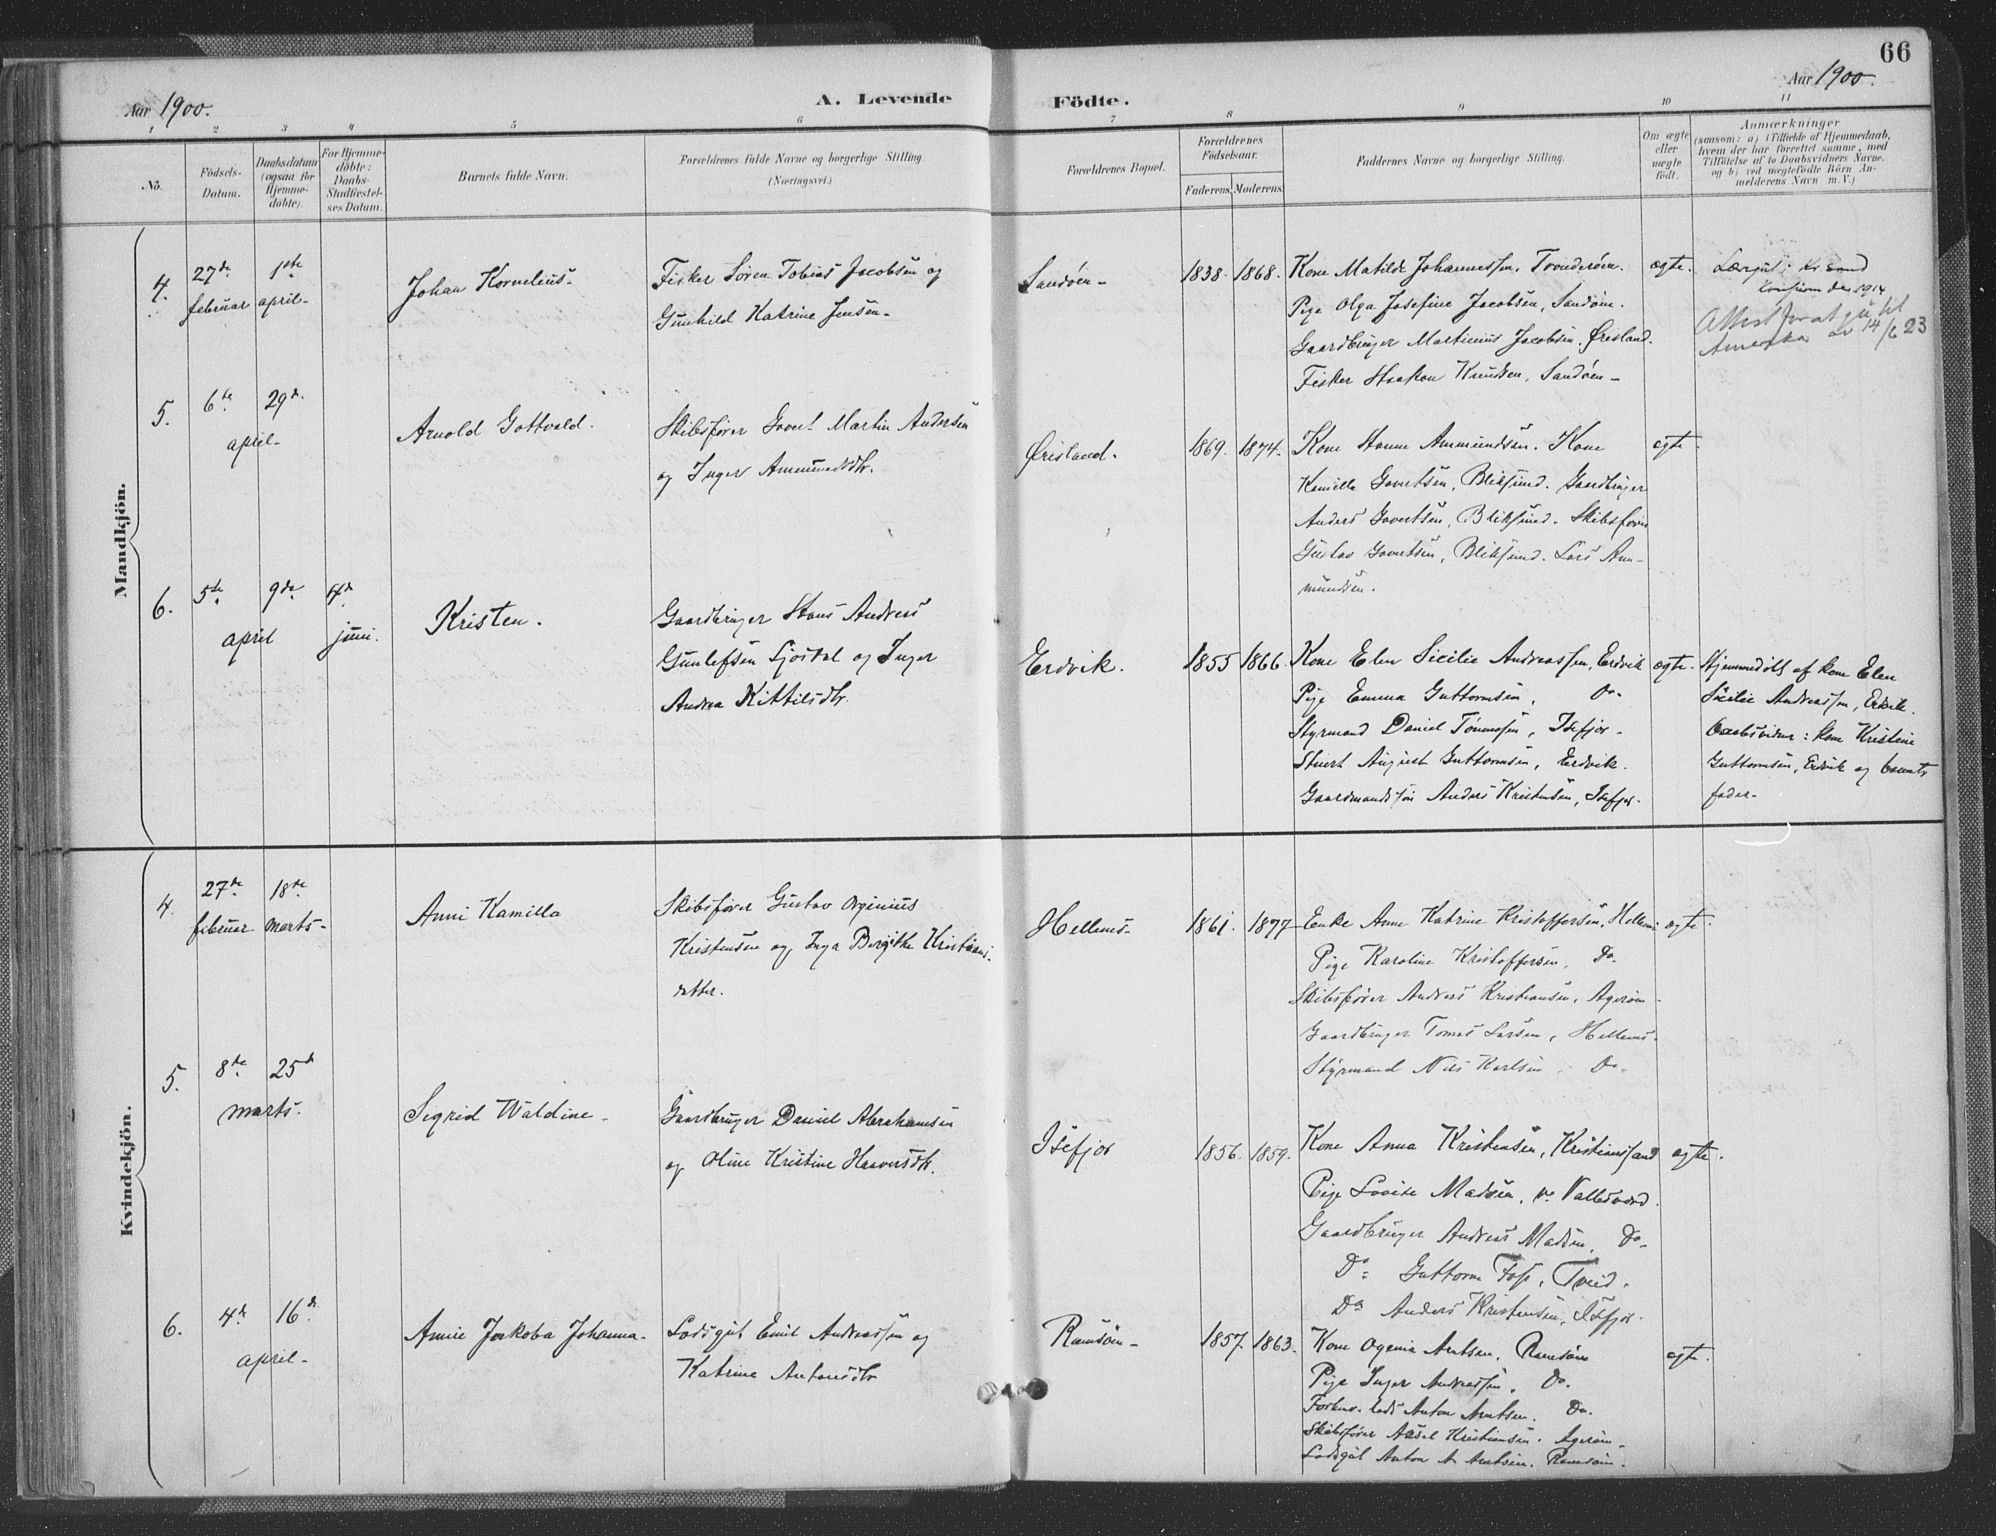 66
Aar 1900.
A. Levende Födte.
Aar 1900.
1 2 3 4 5 6 7 8 9 10 11
No.
Födsels-Datum.
Daabsdatum (ogsaa for Hjemme-döbte).
For Hjemme-döbte: Daabs-Stadfæstel-ses Datum.
Barnets fulde Navn.
Forældrenes fulde Navne og borgerlige Stilling.
(Næringsvei.)
Forældrenes Bopæl.
Forældrenes Födselsaar.
Faderens. Moderens.
Faddernes Navne og borgerlige Stilling.
Om ægte eller uægte födt.
Anmærkninger
(saasom: a) i Tilfælde af Hjemmedaab,
hvem der har forrettet samme, med
Tilföielse af to Daabsvidners Navne.
og b) ved uægtefödte Börn An-
melderens Navn m. V.)
Mandkjön.
4. 27de februar 1ste april-
Johan Kornelius-
Fisker Søren Tobias Jacobsen og
Gunhild Katrine Jensen-
Sandøen-
1838. 1868.
Kone Matilde Johannessen,
Pige Olga Josefine Jacobsen, Sandøen.
Gaardbruger Martinius Jacobsen, Ørisland.
Fisker Haakon Knudsen, Sandøen-
ægte.
1914
Attest for at til
Amerika 14/6 23
5. 6te 29de
april-
Arnold Gottvald.
Skibsfører Govert Martin Andersen
og Inger Ammundsdtr.
Ørisland.
1869. 1874.
Kone Hanne Ammundsen. Kone
Kamilla Govertsen, Bliksund. Gaardbruger
Anders Govertsen, Bliksund. Skibsfører
Gustav Govertsen, Bliksund. Lars Am-
mundsen.
ægte.
6. 5te 9de 4de
april juni.
Kristen.
Gaardbruger Hans Andreas
Gunlefsen og Inger
Andrea Kittilsdtr.
Erdvik.
1855 1866.
Kone Elen Sicilie Andreassen, Erdvik
Pige Emma Guttormsen, Do-
Styrmand Daniel Tønnessen, Isefjær-
Stuert August Guttormsen, Erdvik.
Gaardmandssøn Anders Kristensen, Isefjær-
ægte.
Hjemmedøbt af kone Elen
Sicilie Andreassen, Erdvik.
Daabsvidner: kone Kristine
Guttormsen, Erdvik og barnets
fader-
Kvindekjön.
4. 27de 18de
februar marts-
Anni Kamilla
Skibsfører Gustav
Kristensen og Inga Bergitte Kristians-
datter.
Hellenes-
1861. 1877
Enke Anne Katrine Kristoffersen, Hellenes
Pige Karoline Kristoffersen, Do-
Skibsfører Andreas Kristiansen, Agerøen-
Gaardbruger Tomas Larsen, Hellenes-
Styrmand Nils Karlsen, Do-
ægte.
5. 8de 25de
marts.
Sigrid Waldine-
Gaardbruger Daniel Abrahamsen
og Oline Kristine Haaversdtr.
Isefjær
1856. 1859.
Kone Anna Kristensen, Kristianssand
Pige Lovise Madsen,
Gaardbruger Andreas Madsen, Do-
Do- Guttorm Foss, Tveid.
Do Anders Kristensen, Isefjær-
ægte.
6. 4de 16de
april-
Annie Jakoba Johanna-
Lodsgut Emil Andreassen og
Katrine Antonsdtr
Ramsøen-
1857. 1863.
Kone Ogenia Arntsen, Ramsøen
Pige Inger Andreassen, Do.
Forhenv. lods Anton Arntsen. Do.
Skibsfører Aksel Kristiansen. Agerøen-
Lodsgut Anton A. Arntsen. Ramsøen-
ægte.